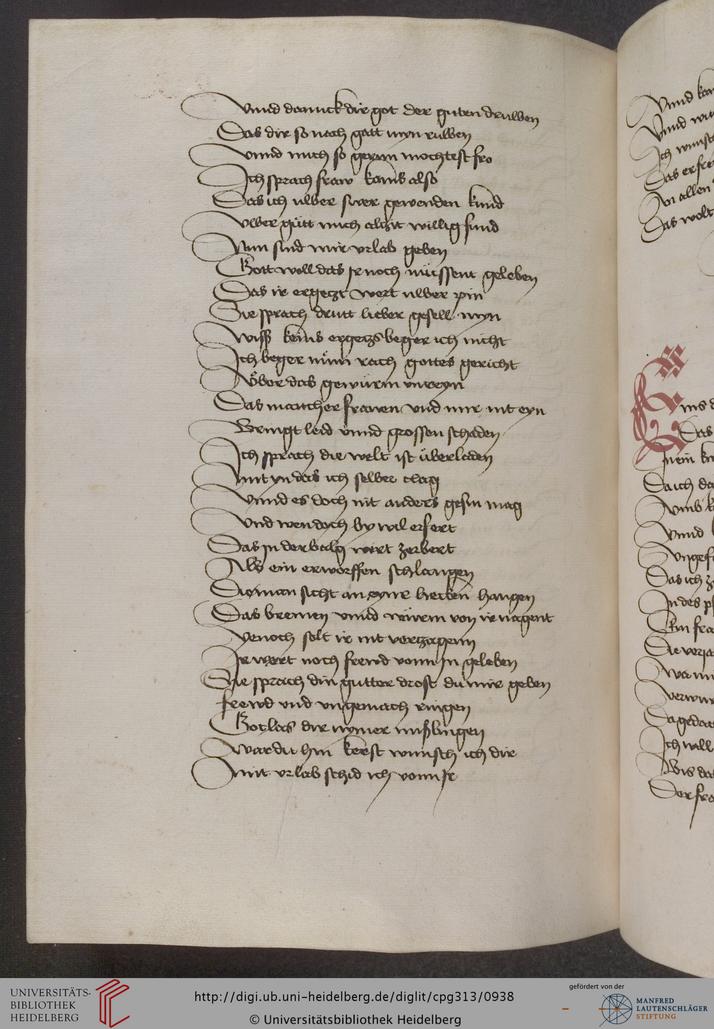 Vnnd danck dir got der guten druwen
Das dir so nach gatt myn ruwen
Vnnd mich so gern mochtest fro
Ich sprach fraw kains also
Das ich uwer swer geworden kund
Uwer gütt mich alzit willig fund
Nun sind mir vrlab geben
Gott woll das ir noch müssent geleben
Das ir ergetzt wert uwer pin
Sie sprach drutt lieber gesell myn
Wiss keins ergetzs beger ich nicht
Ich beger nün rach gottes gericht
Vber das gewürm vnreyn
Das mancher frawen vnd mir nit eyn
Bringt leid vnnd grossen schaden
Ich sprach die welt ist überladen
mit yn das ich selber clag
Vnnd es doch nit anders gesin mag
Vnd wen doch by wil erfert
Das in der balg wirt zerbert
Als ein erworffen schlangen
Die man sicht an eyner hecken hangen
Das bremen vnnd würm von ir nagent
Yenoch solt ir nit verzagenn
Ir wert noch frewd vonn in geleben
Sie sprach din gutter drost du mir geben
frewd vnd vngemach ringen
Got las dir nymer mißlingen
War du hin kerst wünsch ich dir
mit vrlab schid ich vonn ir
Vnnd
Vnnd
Ich wunsch
Das
In allen
Das wolt
Eins
Das
Da ich
Vmb
Vnnd
Das ich
In des
Ein
Ich will
Bis das
Der
UNIVERSITÄTS-
BIBLIOTHEK
HEIDELBERG
http://digi.ub.uni-heidelberg.de/diglit/cpg313/0938
© Universitätsbibliothek Heidelberg
gefördert von der
MANFRED
LAUTENSCHLÄGER
STIFTUNG